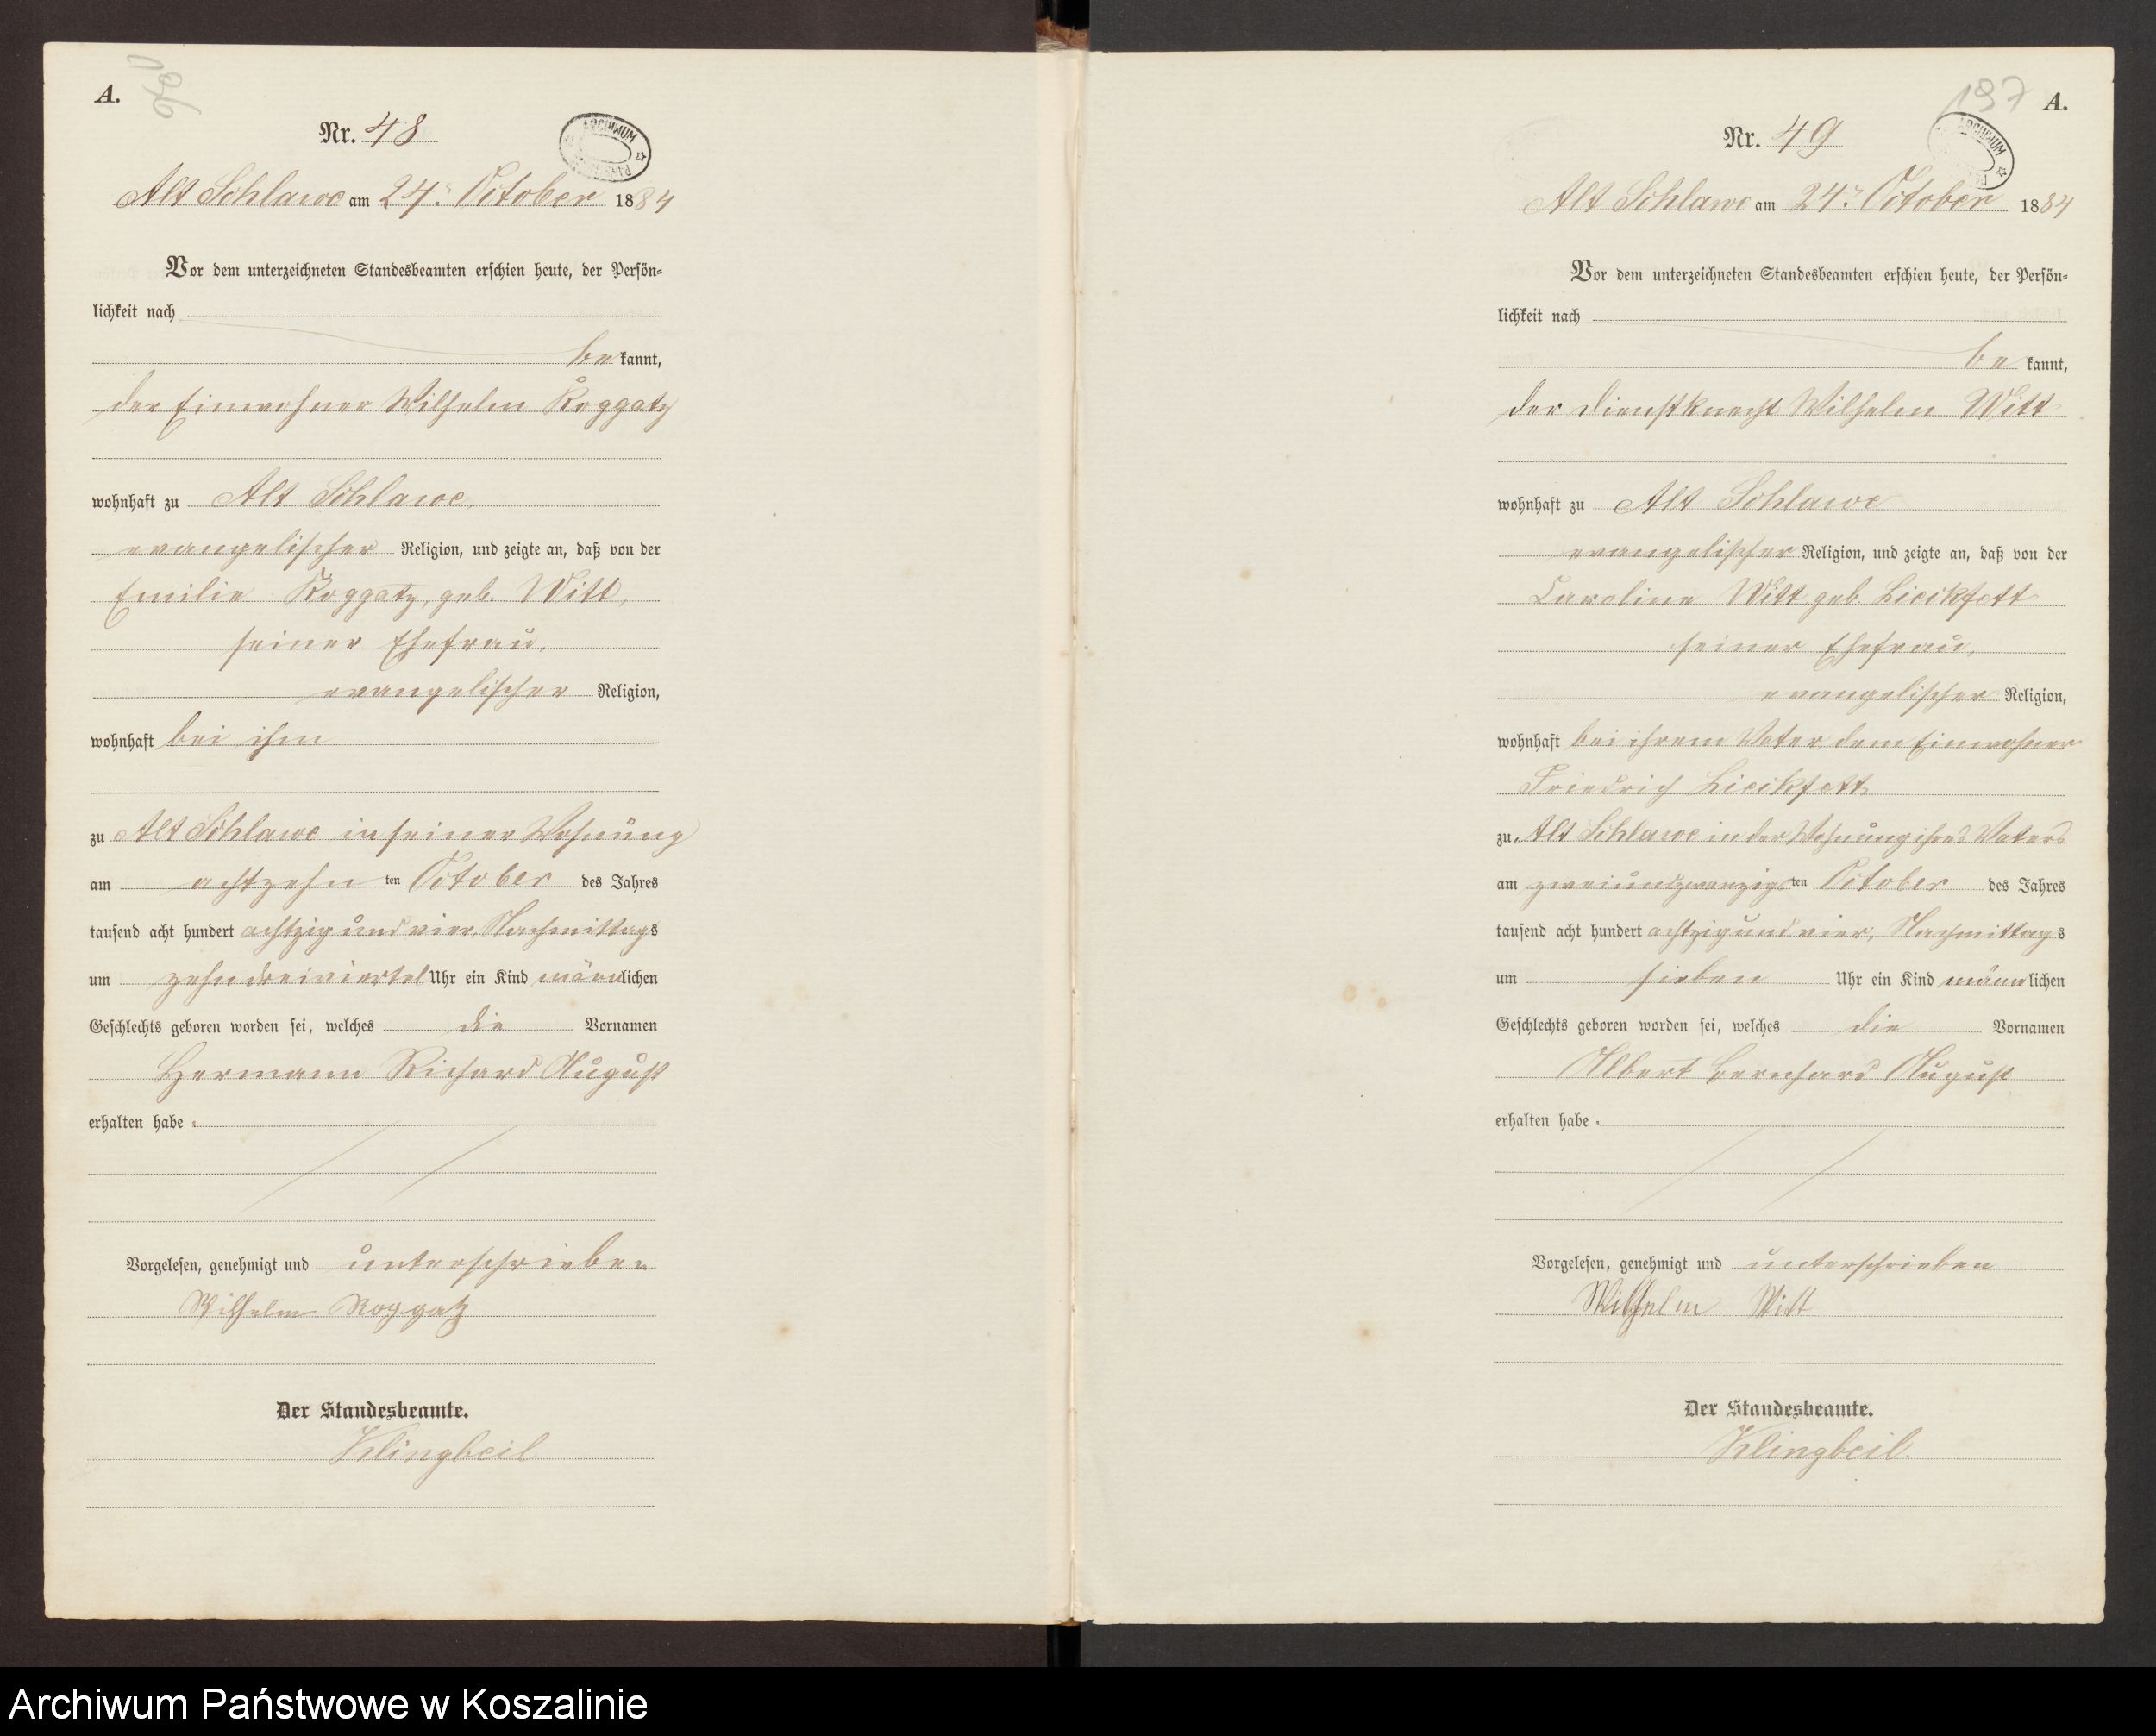 A.
Nr. 48
ARCHIWUM
Alt Schlawe am 24. October 1884
Vor dem unterzeichneten Standesbeamten erschien heute, der Persön-
lichkeit nach
bekannt,
der Einwohner Wilhelm Roggatz
wohnhaft zu Alt Schlawe,
evangelischer Religion, und zeigte an, daß von der
Emilie Roggatz, geb. Witt,
seiner Ehefrau,
evangelischer Religion,
wohnhaft bei ihm
zu Alt Schlawe in seiner Wohnung
am achtzehnten October des Jahres
tausend acht hundert achtzig und vier, Nachmittags
um zehn dreiviertel Uhr ein Kind männlichen
Geschlechts geboren worden sei, welches die Vornamen
Hermann Richard August
erhalten habe.
Vorgelesen, genehmigt und unterschrieben
Wilhelm Roggatz
Der Standesbeamte.
Klingbeil
197 A.
Nr. 49
ARCHIWUM
Alt Schlawe am 24. October 1884
Vor dem unterzeichneten Standesbeamten erschien heute, der Persön-
lichkeit nach
bekannt,
der Dienstknecht Wilhelm Witt
wohnhaft zu Alt Schlawe
evangelischer Religion, und zeigte an, daß von der
Caroline Witt geb.
seiner Ehefrau,
evangelischer Religion,
wohnhaft bei ihrem Vater dem Einwohner
Friedrich
zu Alt Schlawe in der Wohnung ihres Vaters
am zweiundzwanzigsten October des Jahres
tausend acht hundert achtzig und vier, Nachmittags
um sieben Uhr ein Kind männlichen
Geschlechts geboren worden sei, welches die Vornamen
Albert Bernhard August
erhalten habe.
Vorgelesen, genehmigt und unterschrieben
Wilhelm Witt
Der Standesbeamte.
Klingbeil.
Archiwum Państwowe w Koszalinie